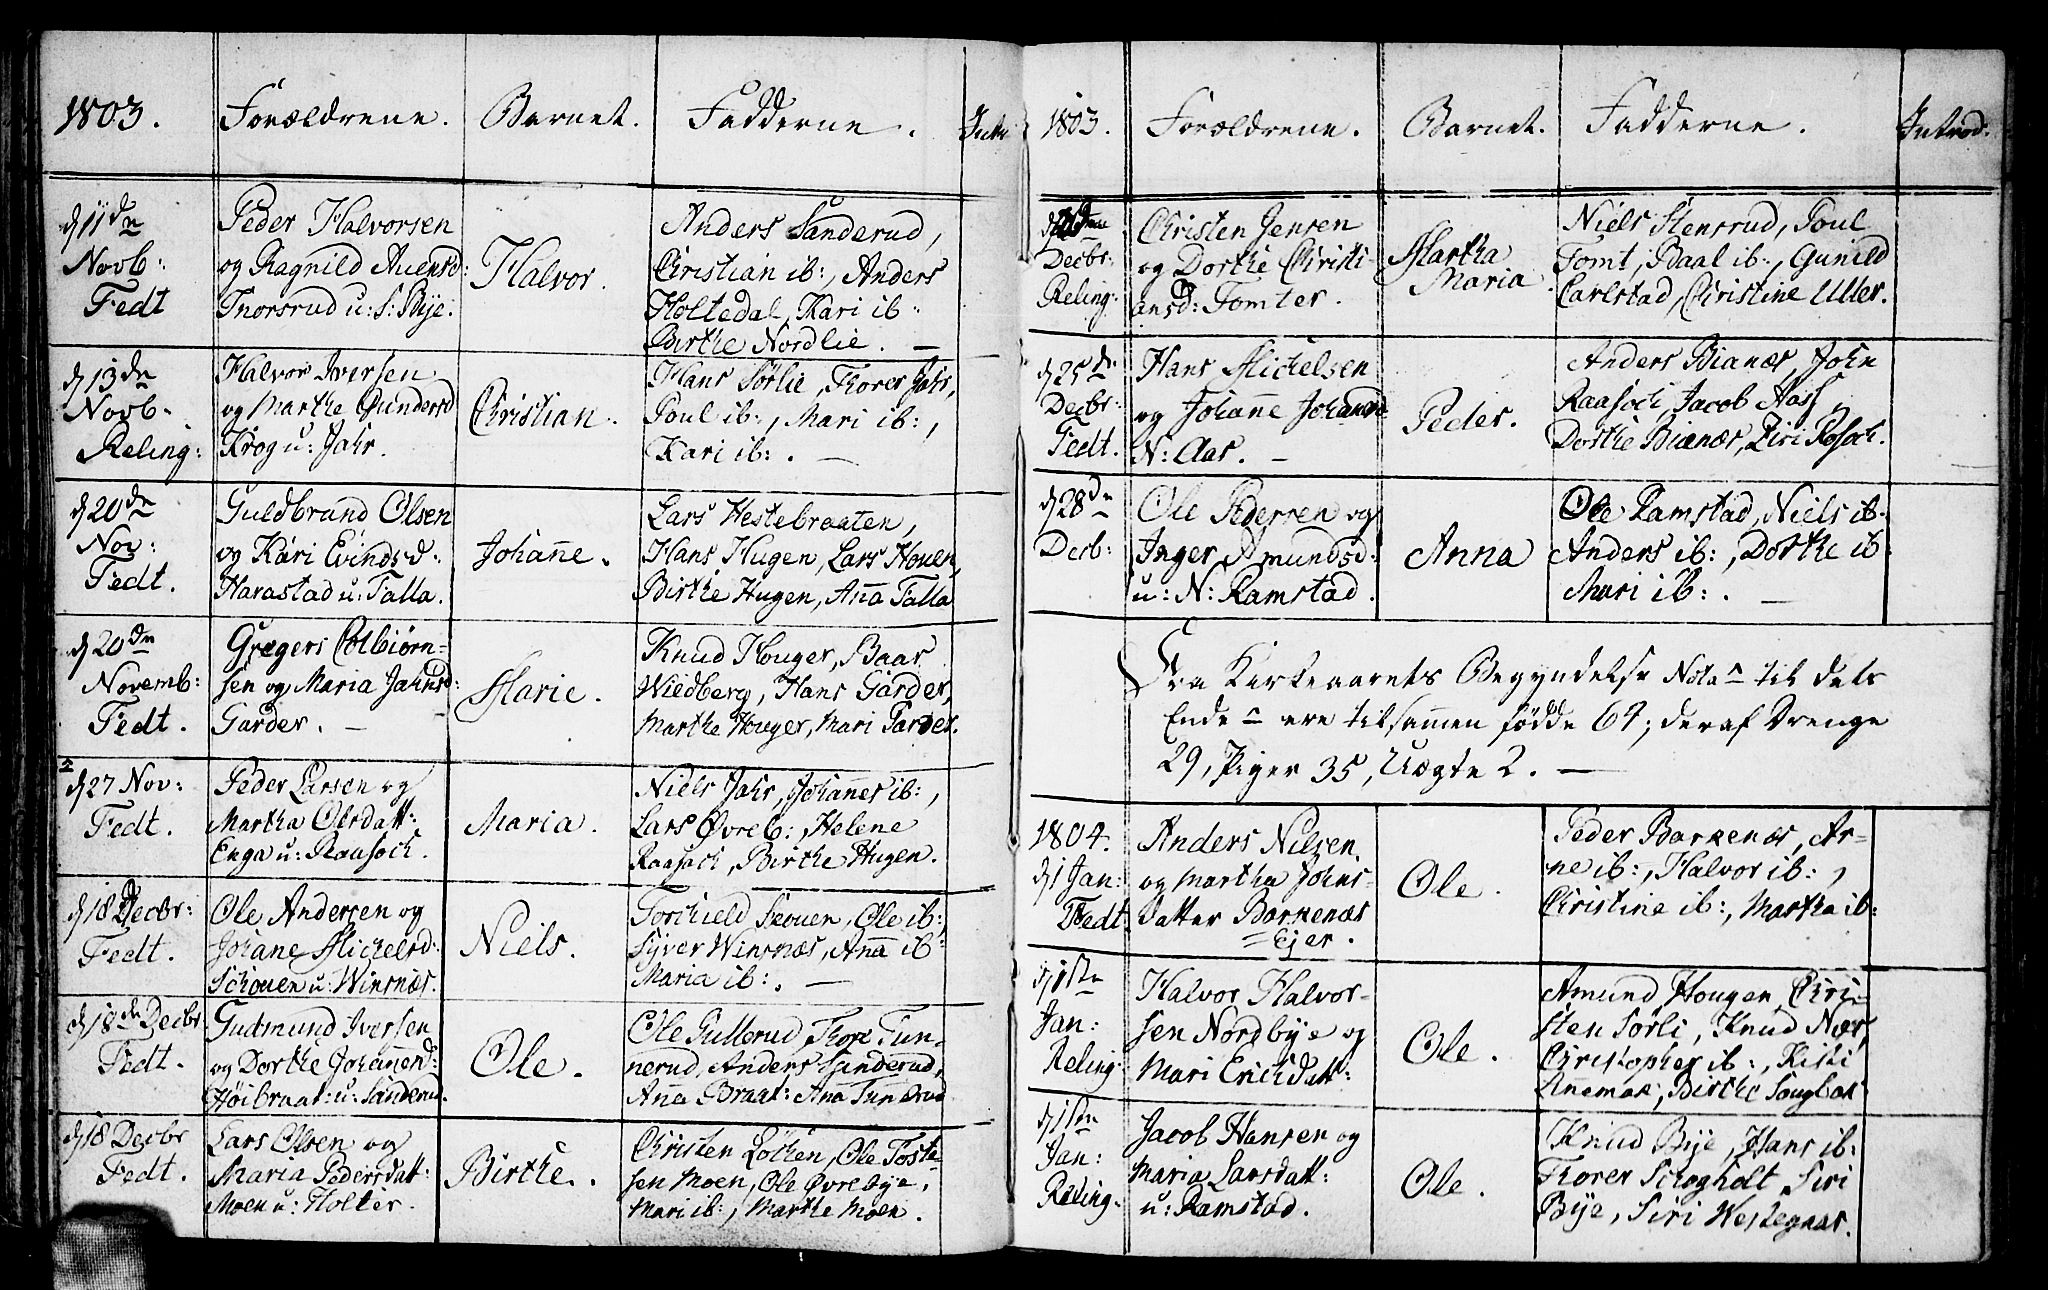 1803. Forældrene. Barnet. Fadderne. Intr
d 11 dn
Novb:
Fedt
Peder Halvorsen
og Ragnild Auensd:
Thorsrud u: S: Bÿe.
Halvor.
Anders Sanderud,
Christian ib:, Anders
Holtedal, Kari ib:
Birthe Nordlie. —
d 13 dn
Novb.
Reling:
Halvor Iversen
og Marthe Gundersd
Krog u: Jahr.
Christian.
Hans Sørlie, Thorer Jahr,
Poul ib:, Mari ib:,
Kari ib: . —
d 20 dn
Nov:
Fedt.
Guldbrand Olsen
og Kari Evindsd:
Harastad u: Falla.
Johanne.
Lars Hestebraaten,
Hans Hugen, Lars Houen,
Birthe Hugen, Anna Falla
d 20 dn
Novemb:
Fedt.
Gregers Colbiørn-
sen og Maria Jahnsd:
Garder. —
Marie.
Knud Houger, Baar
Wiedberg, Hans Garder,
Marthe Houger, Mari Garder.
d 27 Nov:
Fedt.
Peder Larsen og
Martha Olsdatt:
Enga u: Raasoch.
Maria.
Niels Jahr, Johannes ib:,
Lars Øvreb:, Helene
Raasoch, Birthe Hugen.
d 18 Decbr:
Fedt.
Ole Andersen og
Johane Michelsd:
Schouen u: Winsnæs.
Niels.
Torchield Scouen, Ole ib:,
Syver Winsnæs, Anna ib:
Maria ib: . —
d 18 dn Decbr
Fedt.
Gudmund Iversen
og Dorthe Johannesd:
Høibraat: u: Sanderud.
Ole.
Ole Gullerud, Thore Tun-
nerud, Anders Sanderud,
Anna Braat: Ana Tunerud
d 18 Decbr
Fedt.
Lars Olsen og
Maria Pedersdatt:
Moen u: Holter.
Birthe.
Christen Løken, Ole Toste-
sen Moen, Ole Øvrebye,
Mari ib:, Marthe Moen.
1803. Forældrene. Barnet. Fadderne. Introd.
Decbr:
Reling:
Christen Jensen
og Dorthe Christi-
ansd: Tomter.
Martha
Maria.
Niels Stensrud, Poul
Tomt, Baal ib:, Gunild
Carlstad, Christine Uller.
d 25 d.
Decbr:
Fedt.
Hans Michelsen
og Johanne Johansd
N: Aas. —
Peder.
Anders Bianæs, John
Raasoch, Jacob Aas,
Dorthe Bianæs, Siri Rasoch.
d 28 dn
Decb:
Ole Pedersen og
Inger Amundsd:
u: N: Ramstad.
Anna
Ole Ramstad, Niels ib:
Anders ib:, Dorthe ib:
Mari ib: . —
Fra Kirkeaarets Begyndelse Nota til dets
Ende ere tilsammen fødde 67; deraf Drenge
29, Piger 35, Uægte 2. —
1804.
d 1 Jan:
Fedt
Anders Nilsen
og Martha Johns-
datter Barkenæs
=Ejer.
Ole.
Peder Barkenæs, Ar-
ne ib:, Halvor ib:,
Christine ib:, Martha ib:
d 1ste
Jan:
Reling:
Halvor Halvor-
sen Nordbÿe og
Mari Erichdatt:
Ole.
Amund Hougen, Chri-
sten Sørli, Knud Nær,
Christopher ib:, Kisti
Annemoe, Birthe
d 1ste
Jan:
Reling:
Jacob Hansen og
Maria Larsdatt:
u: Ramstad.
Ole.
Knud Bÿe, Hans ib:
Thorer Schogholt, Siri
Bÿe, Siri Westegaar.